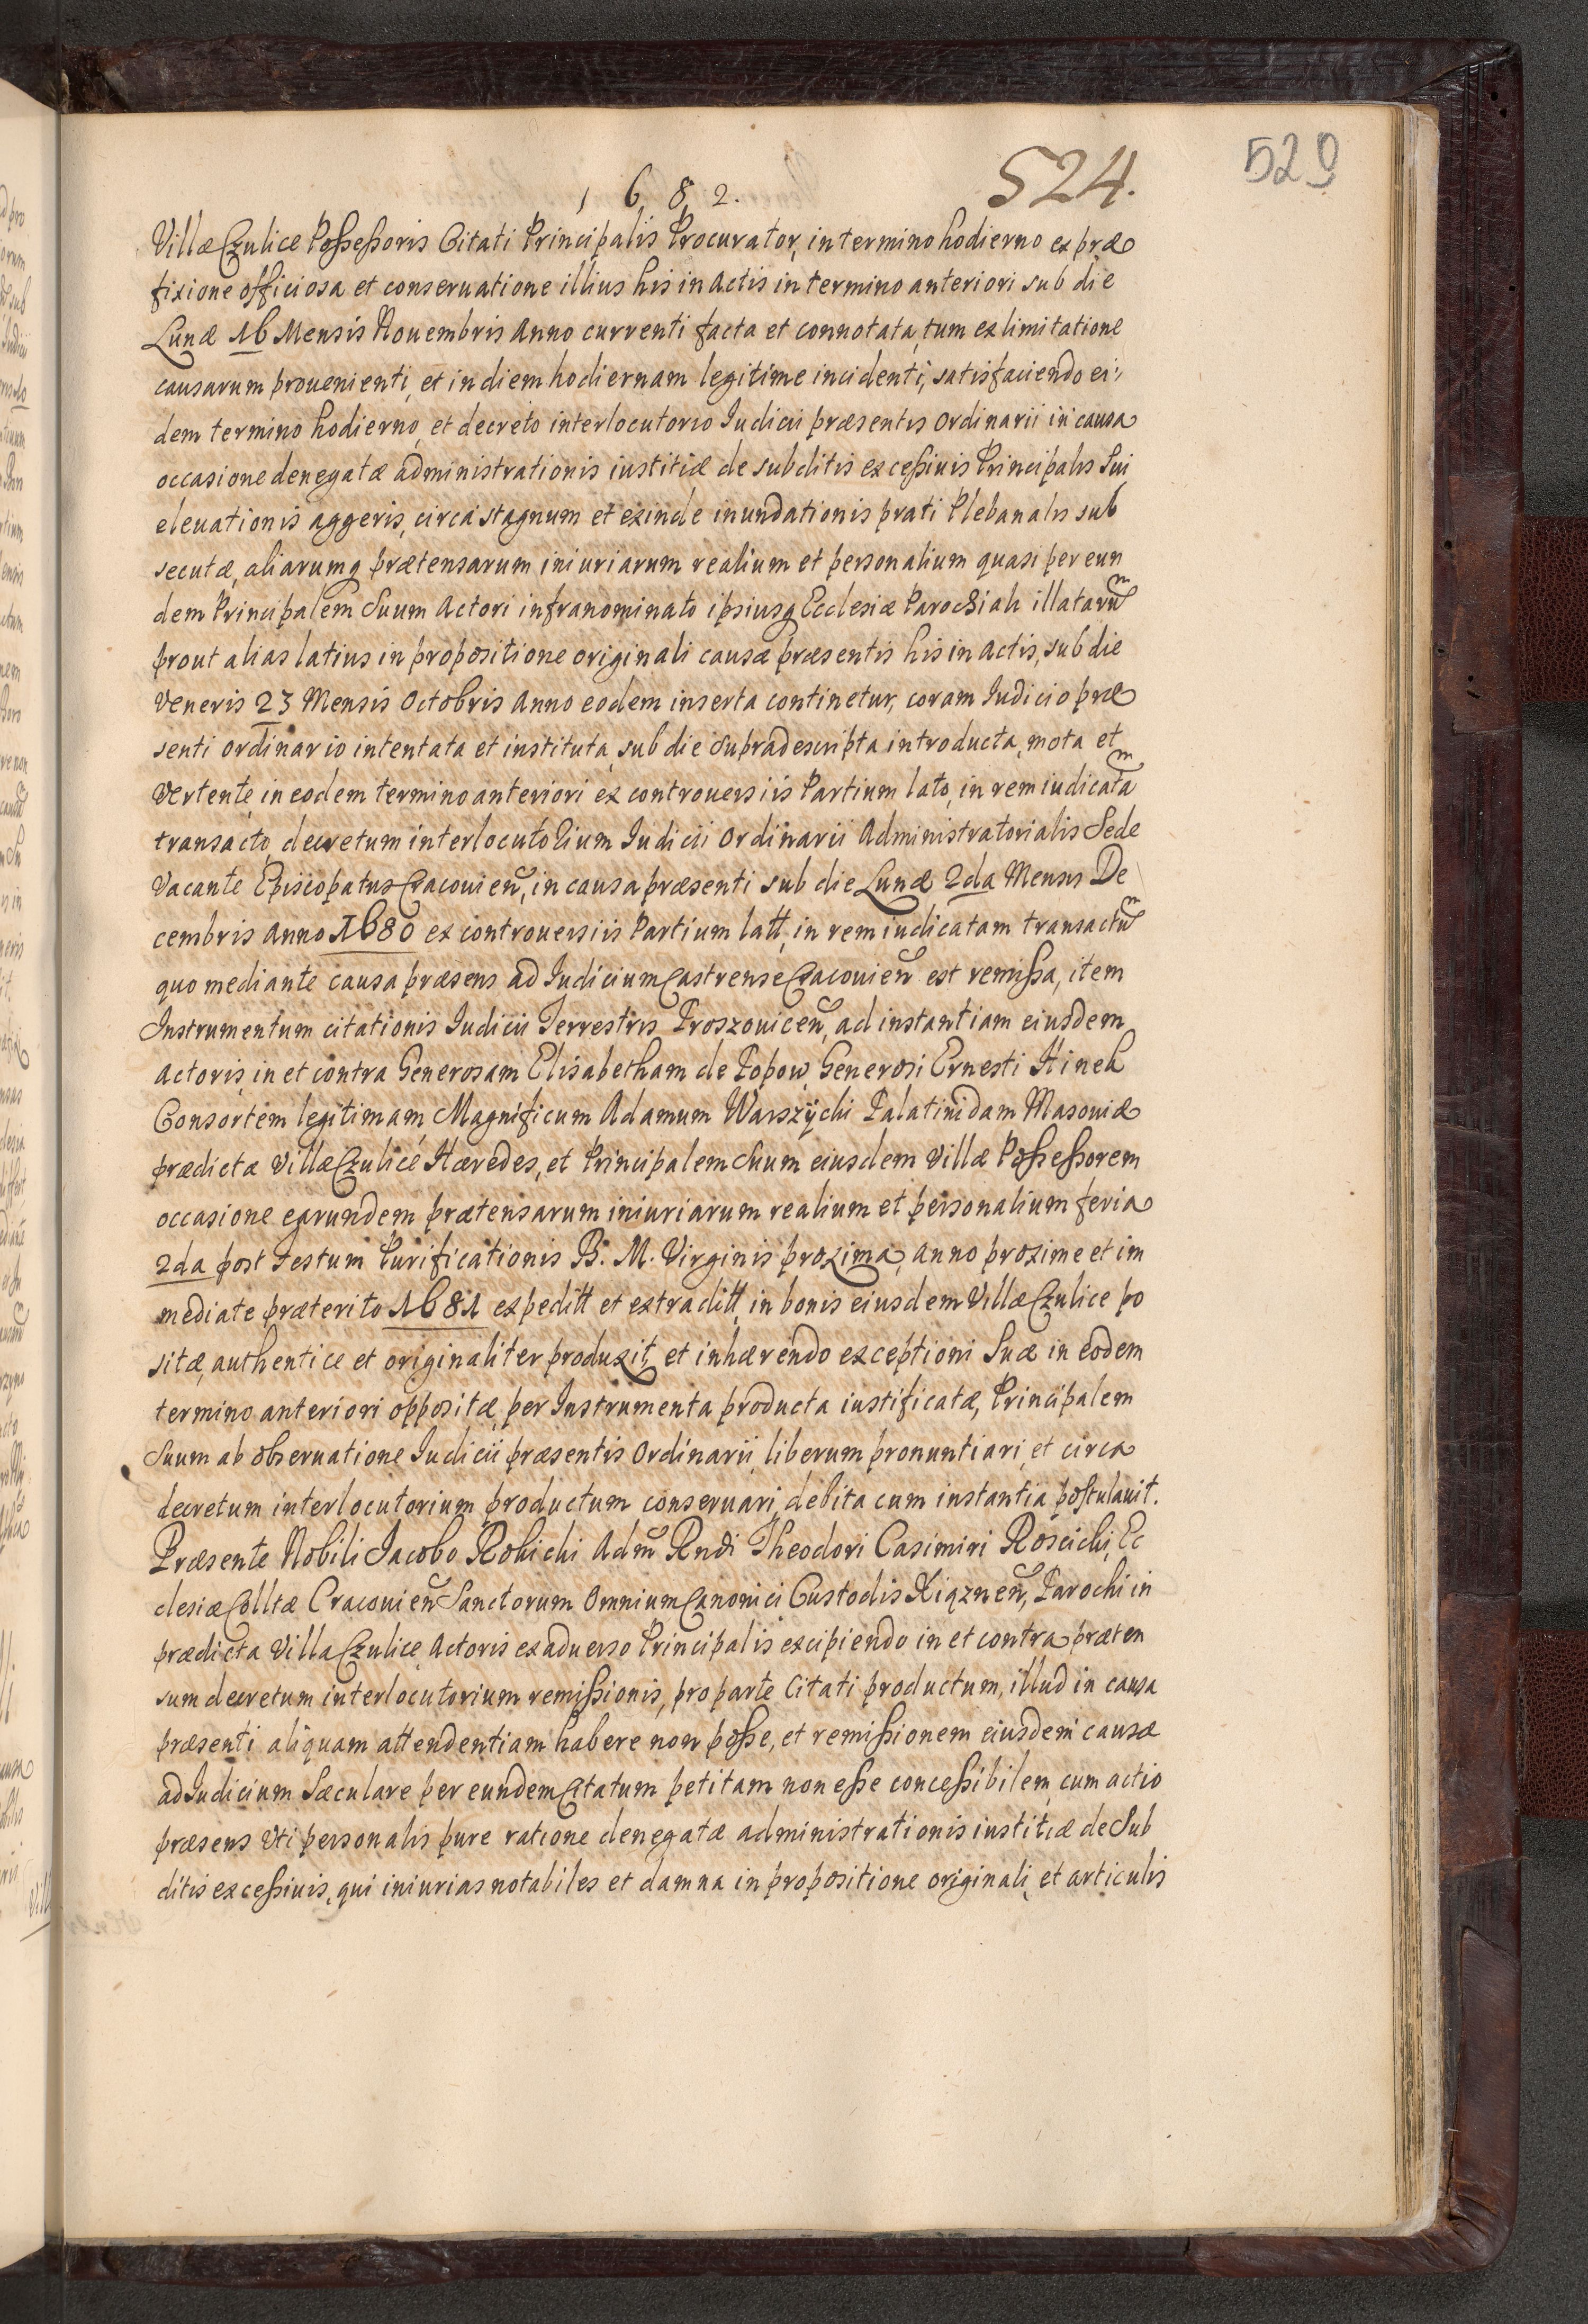 1682.
524.
529
Villæ Czulice Possessoris Citati Principalis Procurator, in termino hodierno ex præ
fixione officiosa et conseruatione illius his in Actis in termino anteriori sub die
Lunæ 16 Mensis Nouembris Anno currenti facta et connotata, tum ex limitatione
causarum prouenienti, et in diem hodiernam legitime incidenti, satisfaciendo ei,,
dem termino hodierno, et decreto interlocutorio Iudicii præsentis Ordinarii in causa
occasione denegatæ administrationis iustitiæ de subditis excessiuis Principalis Sui
eleuationis aggeris, circa stagnum et exinde inundationis prati Plebanalis sub
secutæ, aliarumq prætensarum iniuriarum realium et personalium quasi per eun
dem Principalem Suum Actori infranominato ipsiusq Ecclesiæ Parochiali illatarũ
prout alias latius in propositione originali causæ præsentis his in Actis, sub die
Veneris 23 Mensis Octobris Anno eodem inserta continetur, coram Iudicio præ
senti ordinario intentata et instituta, sub die supradescripta introducta, mota et
Vertente, in eodem termino anteriori ex controuersiis Partium lato, in rem iudicatã
transacto, decretum interlocutorium Iudicii Ordinarii Administratorialis Sede
Vacante Episcopatus Cracouieñ, in causa præsenti sub die Lunæ 2da Mensis De
cembris Anno 1680 ex controuersiis Partium latt, in rem iudicatam transactũ
quo mediante causa præsens ad Iudicium Castrense Cracouieñ est remissa, item
Instrumentum citationis Iudicii Terrestris Proszouiceñ, ad instantiam eiusdem
Actoris, in et contra Generosam Elisabetham de Popow, Generosi Ernesti Hinek
Consortem legitimam, Magnificum Adamum Warszÿcki Palatinidam Masouiæ
prædictæ Villæ Czulice Hæredes, et Principalem Suum eiusdem Villæ Possessorem
occasione earundem prætensarum iniuriarum realium et personalium feria
2da post Festum Purificationis B. M. Virginis proxima, Anno proxime et im
mediate præterito 1681 expeditt et extraditt, in bonis eiusdem Villæ Czulice po
sitæ, authentice et originaliter produxit, et inhærendo exceptioni Suæ in eodem
termino anteriori oppositæ, per Instrumenta producta iustificatæ, Principalem
Suum ab obseruatione Iudicii præsentis Ordinarii liberum pronuntiari, et circa
decretum interlocutorium productum conseruari, debita cum instantia postulauit.
Præsente Nobili Iacobo Rokicki Adm̃ Rndi Theodori Casimiri Rościcki, Ec
clesiæ Colltæ Cracouieñ Sanctorum Omnium Canonici Custodis Xiązneñ, Parochi in
prædicta Villa Czulice, Actoris ex aduerso Principalis excipiendo in et contra præten
sum decretum interlocutorium remissionis, pro parte Citati productum, illud in causa
præsenti aliquam attendentiam habere non posse, et remissionem eiusdem causæ
ad Iudicium Sæculare per eundem Citatum petitam non esse concessibilem, cum actio
præsens Vti personalis pure ratione denegatæ administrationis iustitiæ de Sub
ditis excessiuis, qui iniurias notabiles et damna in propositione originali, et articulis